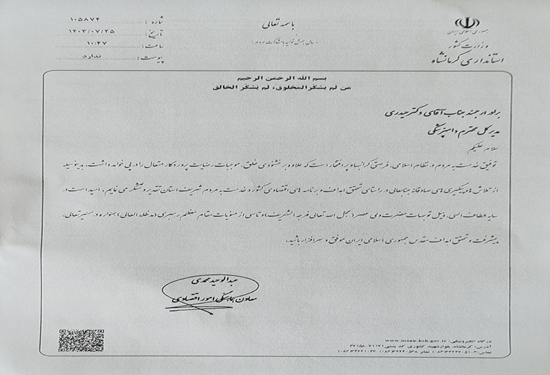 باسمه تعالی
شماره : ۱۰۵۸۷۴
تاریخ : ۱۴۰۳/۰۷/۲۵
ساعت : ۱۰:۴۷
پیوست : ندارد
وزارت کشور
استانداری کرمانشاه
بسم الله الرحمن الرحیم
من لم یشکر المخلوق، لم یشکر الخالق
برادر ارجمند جناب آقای دکتر حیدری
مدیر کل محترم دامپزشکی
سلام علیکم
توفیق خدمت به مردم در نظام اسلامی، فرصتی گرانبها و پر افتخار است که علاوه بر خشنودی خلق، موجبات رضایت پروردگار متعال را در پی خواهد داشت. بدینوسیله
از تلاش ها و پیگیری های صادقانه جنابعالی در راستای تحقق اهداف و برنامه های اقتصادی کشور و خدمت به مردم شریف استان تقدیر و تشکر می نمایم. امید است در
سایه الطاف الهی، ذیل توجهات حضرت ولی عصر (عجل الله تعالی فرجه الشریف) و تاسی از منویات مقام معظم رهبری (مد ظله العالی) همواره در مسیر تعالی،
پیشرفت و تحقق اهداف مقدس جمهوری اسلامی ایران موفق و سرافراز باشید.
عبدالوحید محمدی
معاون هماهنگی امور اقتصادی